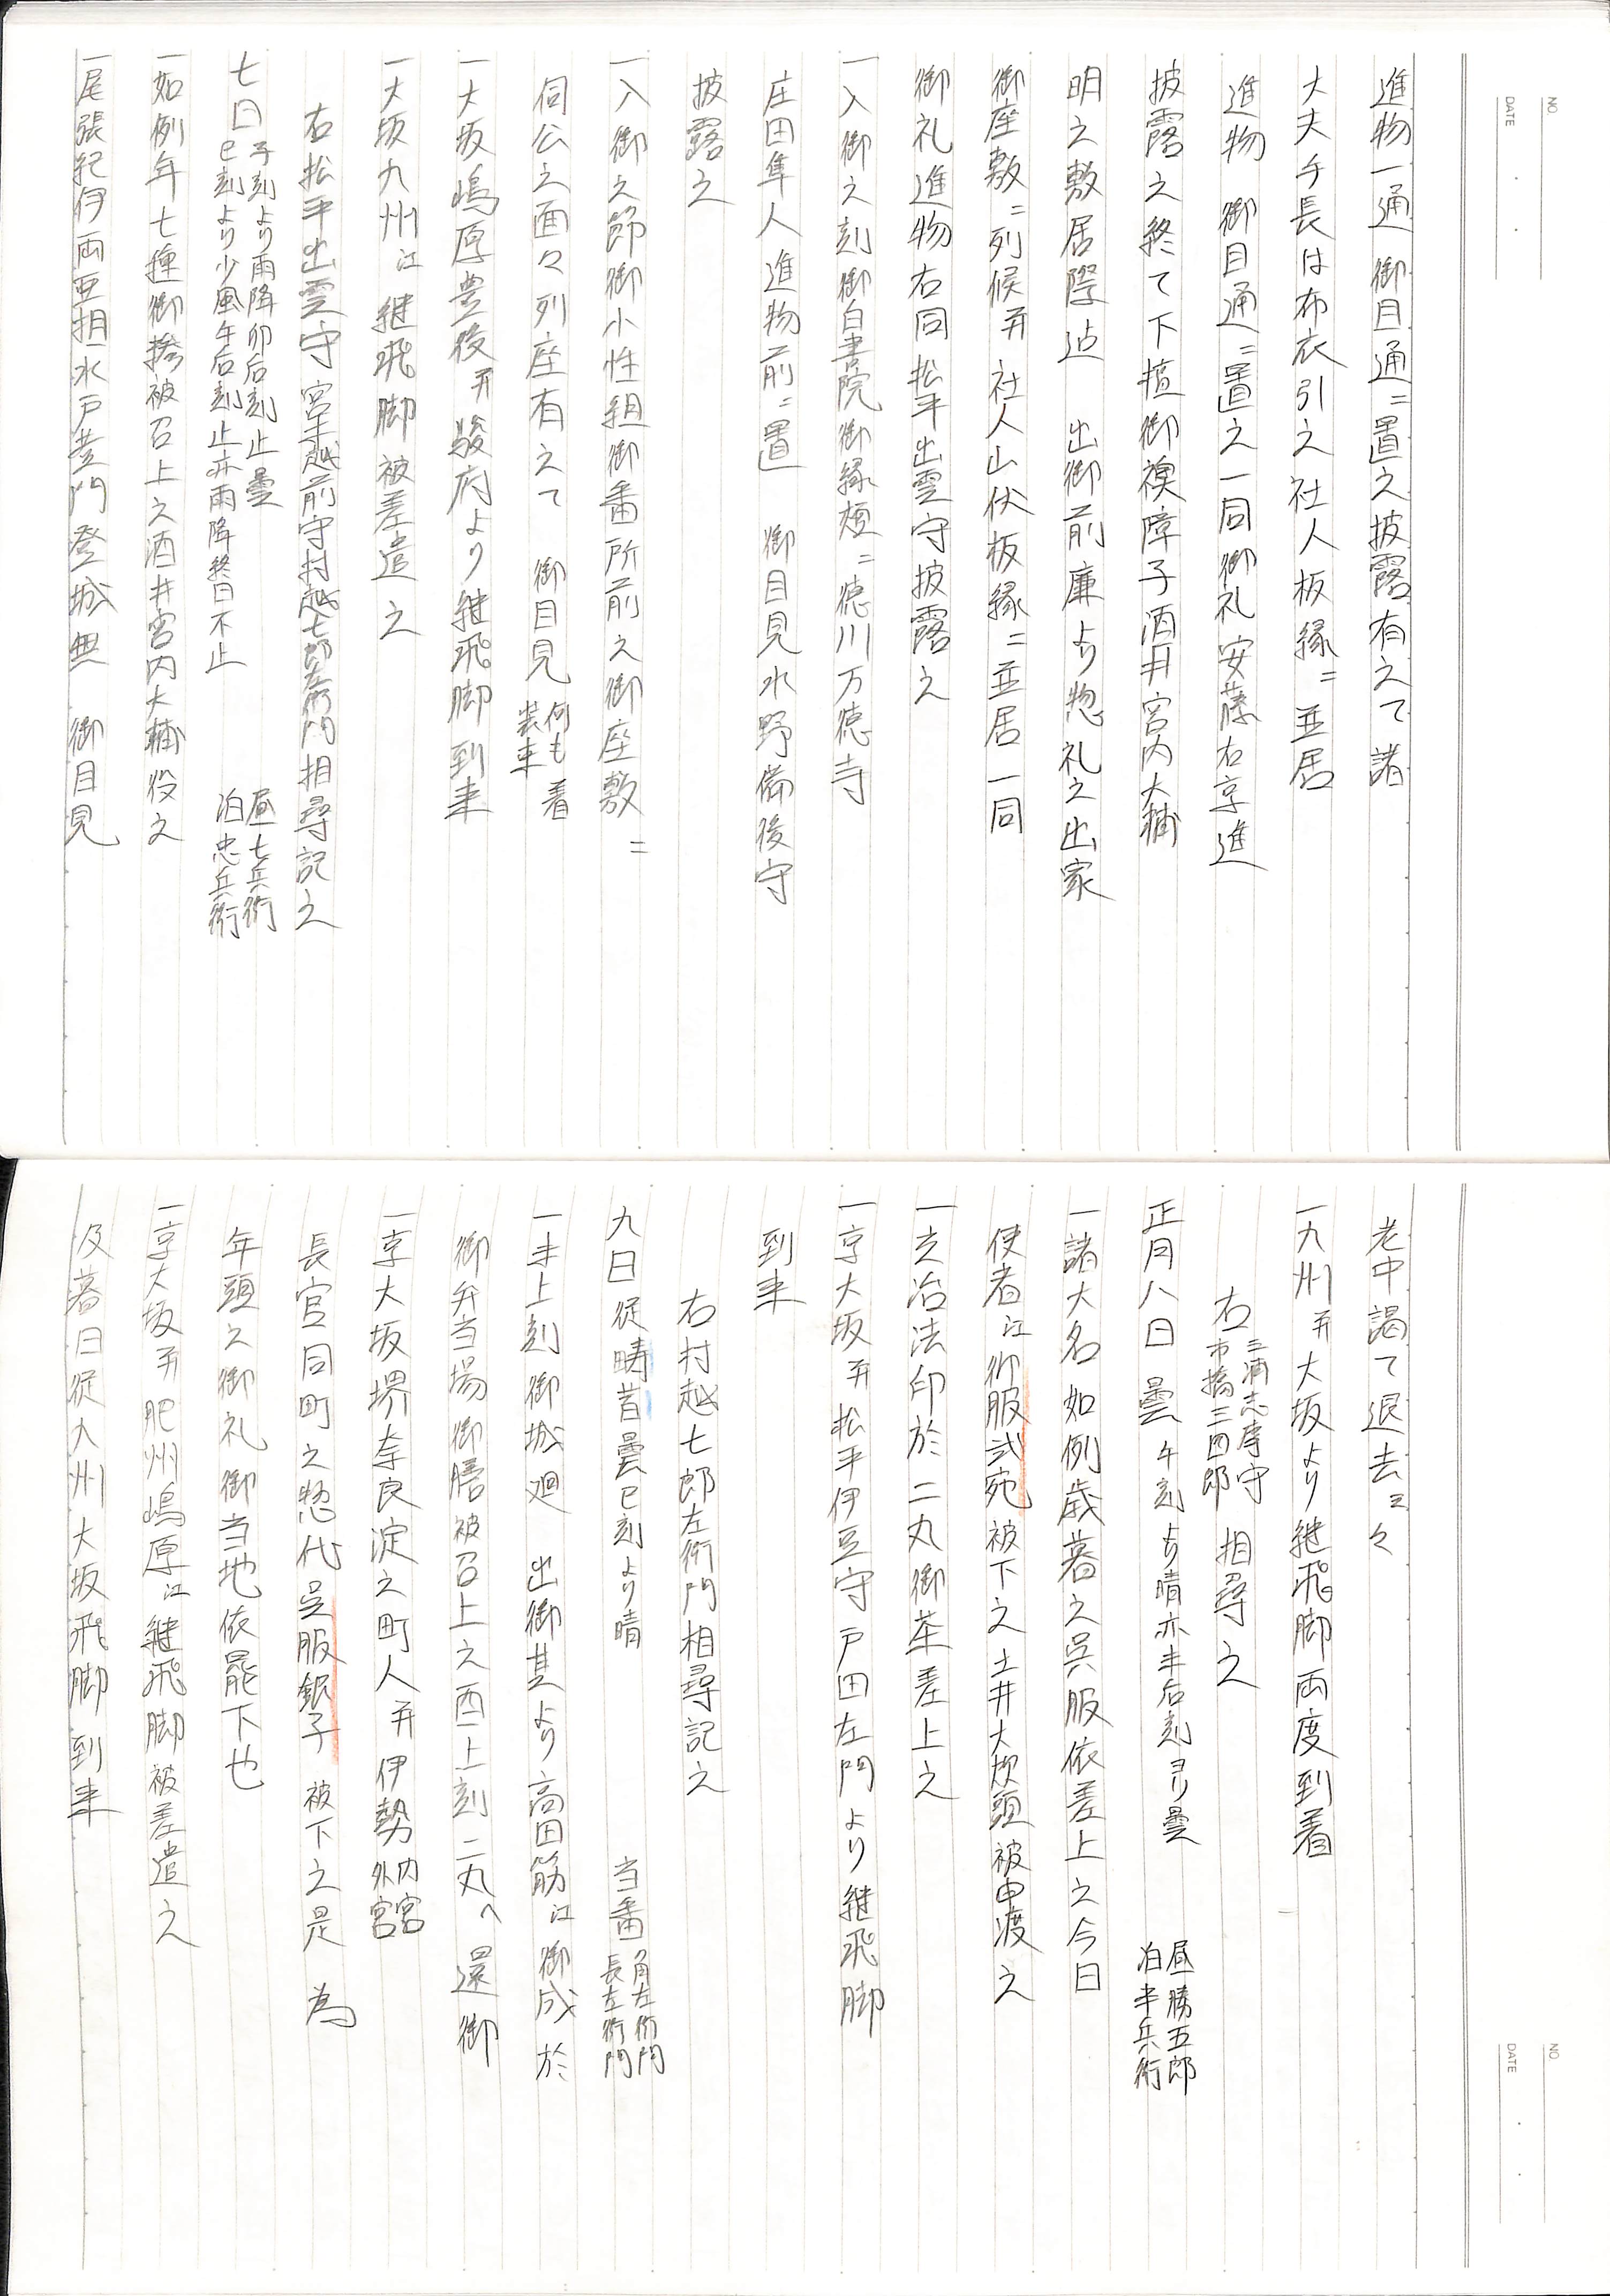 NO.
DATE
進物一通　御目通ニ置之披露有之て諸
大夫手長は布衣引之社人板縁ニ並居
進物　御目通ニ置之一同御礼安藤右京進
披露之終て下壇御襖障子酒井宮内大輔
明之敷居際迠　出御前廉より惣礼之出家
御座敷ニ列候并社人山伏板縁ニ並居一同
御礼進物右同松平出雲守披露之
一入御之刻御白書院御縁頬ニ徳川万徳寺
庄田隼人進物前ニ置　御目見水野備後守
披露之
一入御之節御小性組御番所前之御座敷ニ
伺公之面々列座有之て　御目見何も着装束
一大坂嶋原豊後并駿府より継飛脚到来
一大坂九州江継飛脚被差遣之
右松平出雲守宮末越前守村越七郎左衛門相尋記之
七日子刻より雨降卯后刻止曇　昼七兵衛
巳刻より少風午后刻止亦雨降終日不止　泊忠兵衛
一如例年七種御捧被召上之酒井宮内大輔役之
一尾張紀伊両亜相水戸黄門登城無　御目見
NO.
DATE
老中謁て退去云々
一九州并大坂より継飛脚両度到着
右三浦志摩守市橋三四郎相尋之
正月八日曇午刻より晴亦未后刻ヨリ曇　昼勝五郎　泊半兵衛
一諸大名如例歳暮之呉服依差上之今日
使者江御服弐宛被下之土井大炊頭被申渡之
一立冶法印於二丸御茶差上之
一京大坂并松平伊豆守戸田左門より継飛脚
到来
右村越七郎左衛門相尋記之
九日従疇昔曇巳刻より晴　当番角左衛門長左衛門
一未上刻御城廻　出御其より高田筋江御成於
御弁当場御膳被召上之酉上刻二丸へ還御
一京大坂堺奈良淀之町人并伊勢内宮外宮
長官同町之惣代呉服銀子被下之是為
年頭之御礼御当地依罷下也
一京大坂并肥州嶋原江継飛脚被差遣之
及暮日従九州大坂飛脚到来